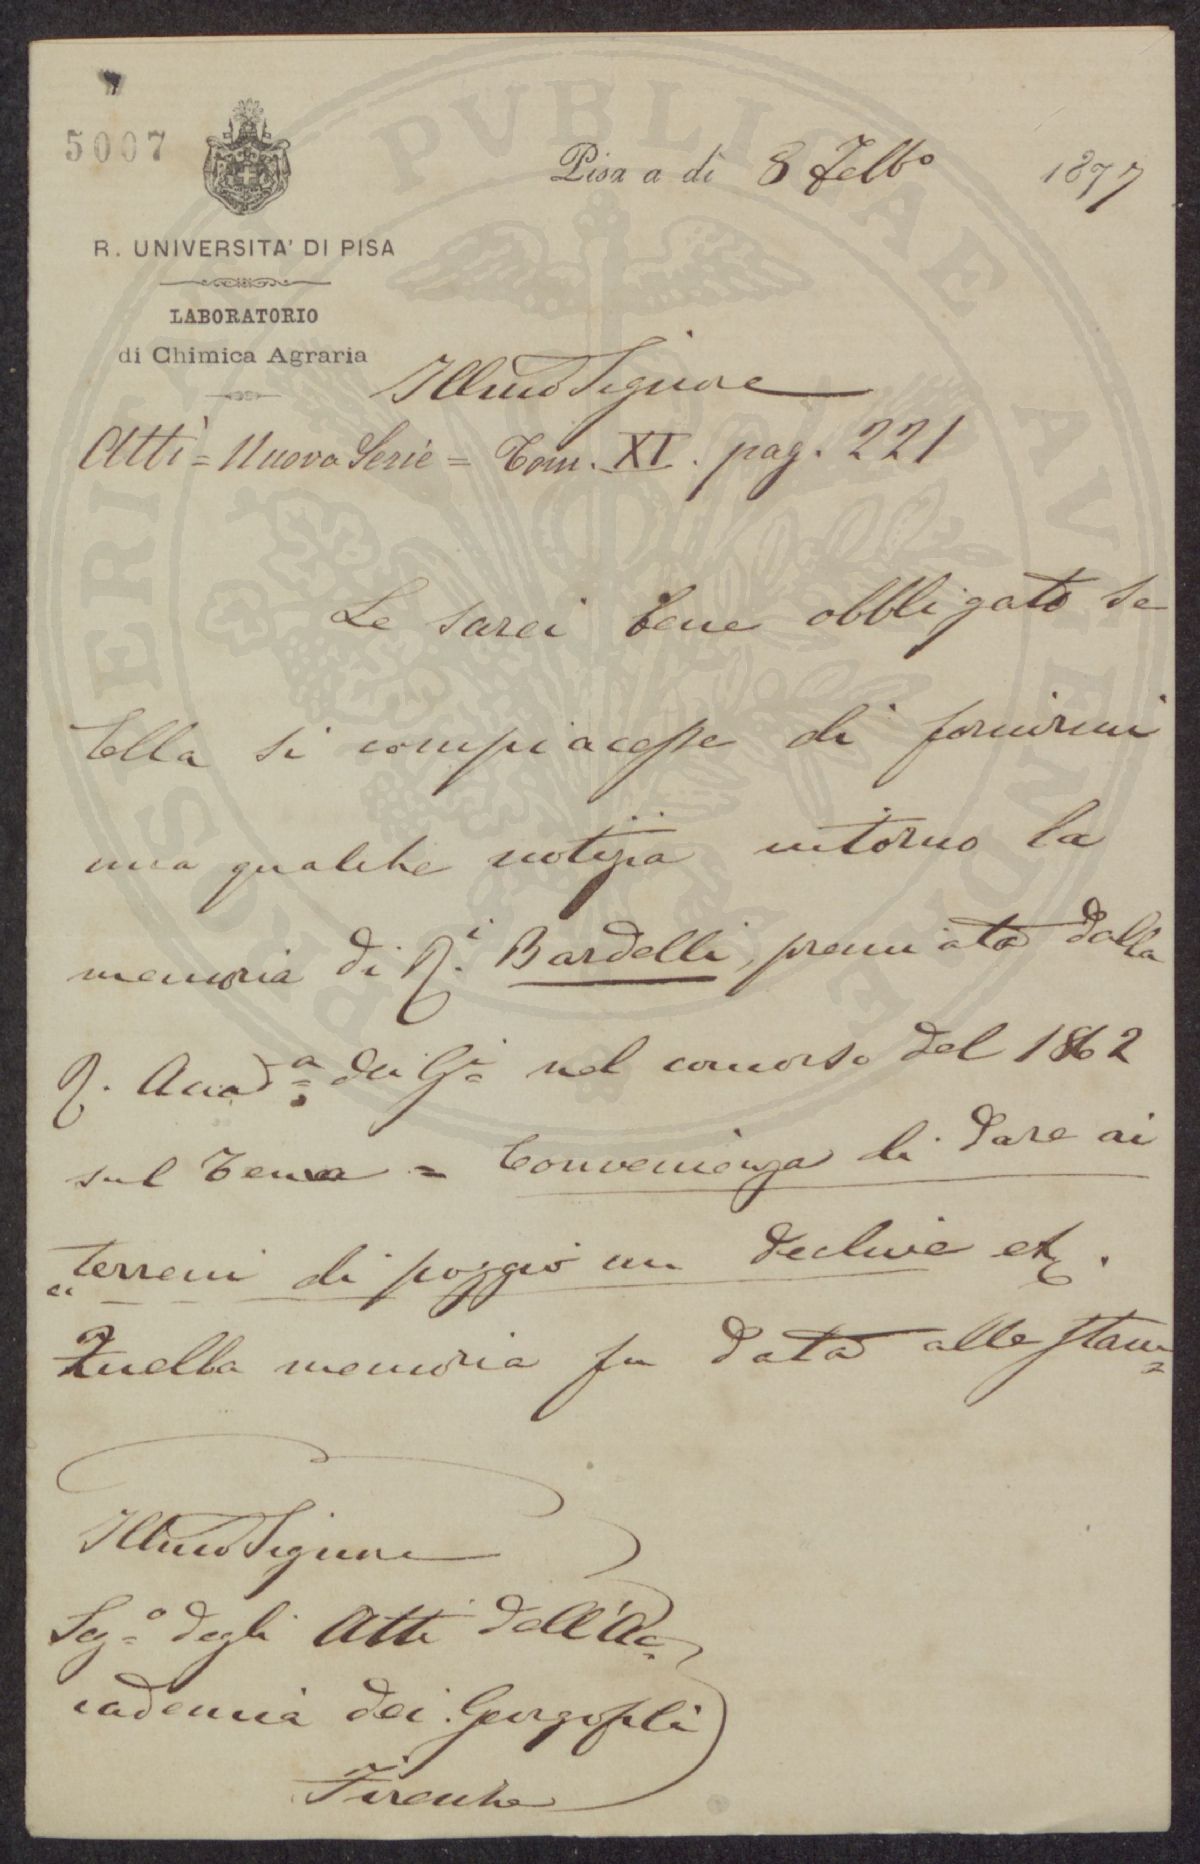 5007
Pisa a dì 8 Febb° 1877
R. UNIVERSITA' DI PISA
LABORATORIO
di Chimica Agraria
Illmo Signore
Atti = Nuova Serie = Tom. XI. pag. 221
Le sarei bene obbligato se
Ella si compiacesse di fornirmi
una qualche notizia intorno la
memoria di Bardelli, premiata dalla
R. Accad.a dei G.i nel concorso del 1862
sul tema = Convenienza di dare ai
"terreni di poggio un declive etc.
Quella memoria fu data alle stam=
Illmo Signore
Seg.o degli Atti dell'Ac=
cademia dei Georgofili
Firenze
PROSPERITATI PVBLICAE AVGENDAE